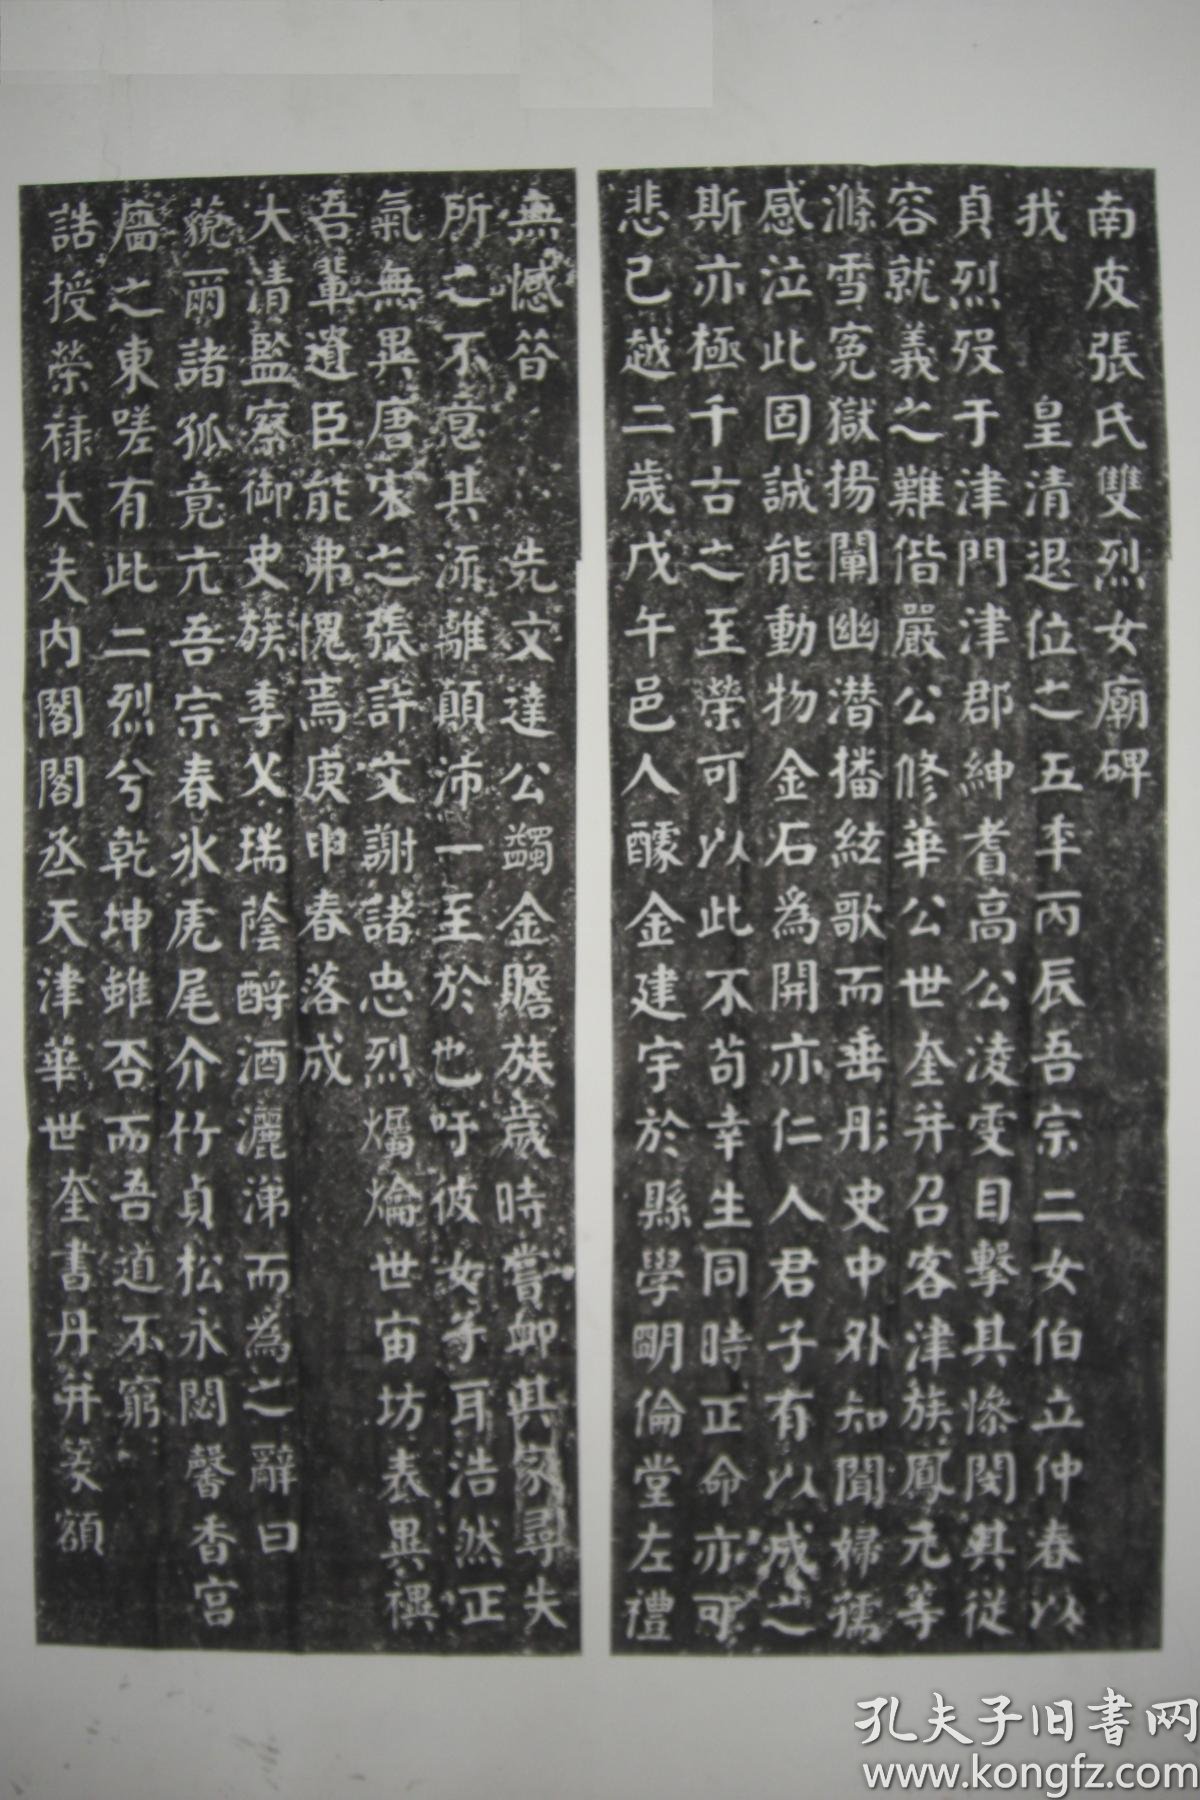 南皮張氏雙烈女廟碑
我　皇清退位之五年丙辰吾宗二女伯立仲春以
貞烈殁于津門津郡紳耆高公淩雯目擊其慘閔其從
容就義之難偕嚴公修華公世奎并召客津族鳳元等
滌雪冤獄揚闡幽潜播絃歌而垂彤史中外知聞婦孺
感泣此固誠能動物金石為開亦仁人君子有以成之
斯亦極千古之至榮可以此不苟幸生同時正命亦可
悲已越二歲戊午邑人醵金建宇於縣學明倫堂左禮
無憾筓　先文達公蠲金贍族歲時嘗卹其家尋失
所之不意其流離顛沛一至於也吁彼女子耳浩然正
氣無異唐宋之張許文謝諸忠烈爥爚世宙坊表異禩
吾輩遺臣能弗愧焉庚申春落成
大清監察御史族季父瑞蔭酹酒灑涕而為之辭曰
藐爾諸孤竟亢吾宗春氷虎尾介竹貞松永閟馨香宫
牆之東嗟有此二烈兮乾坤雖否而吾道不窮
誥授榮祿大夫內閣閣丞天津華世奎書丹并篆額
孔夫子旧書网
www.kongfz.com